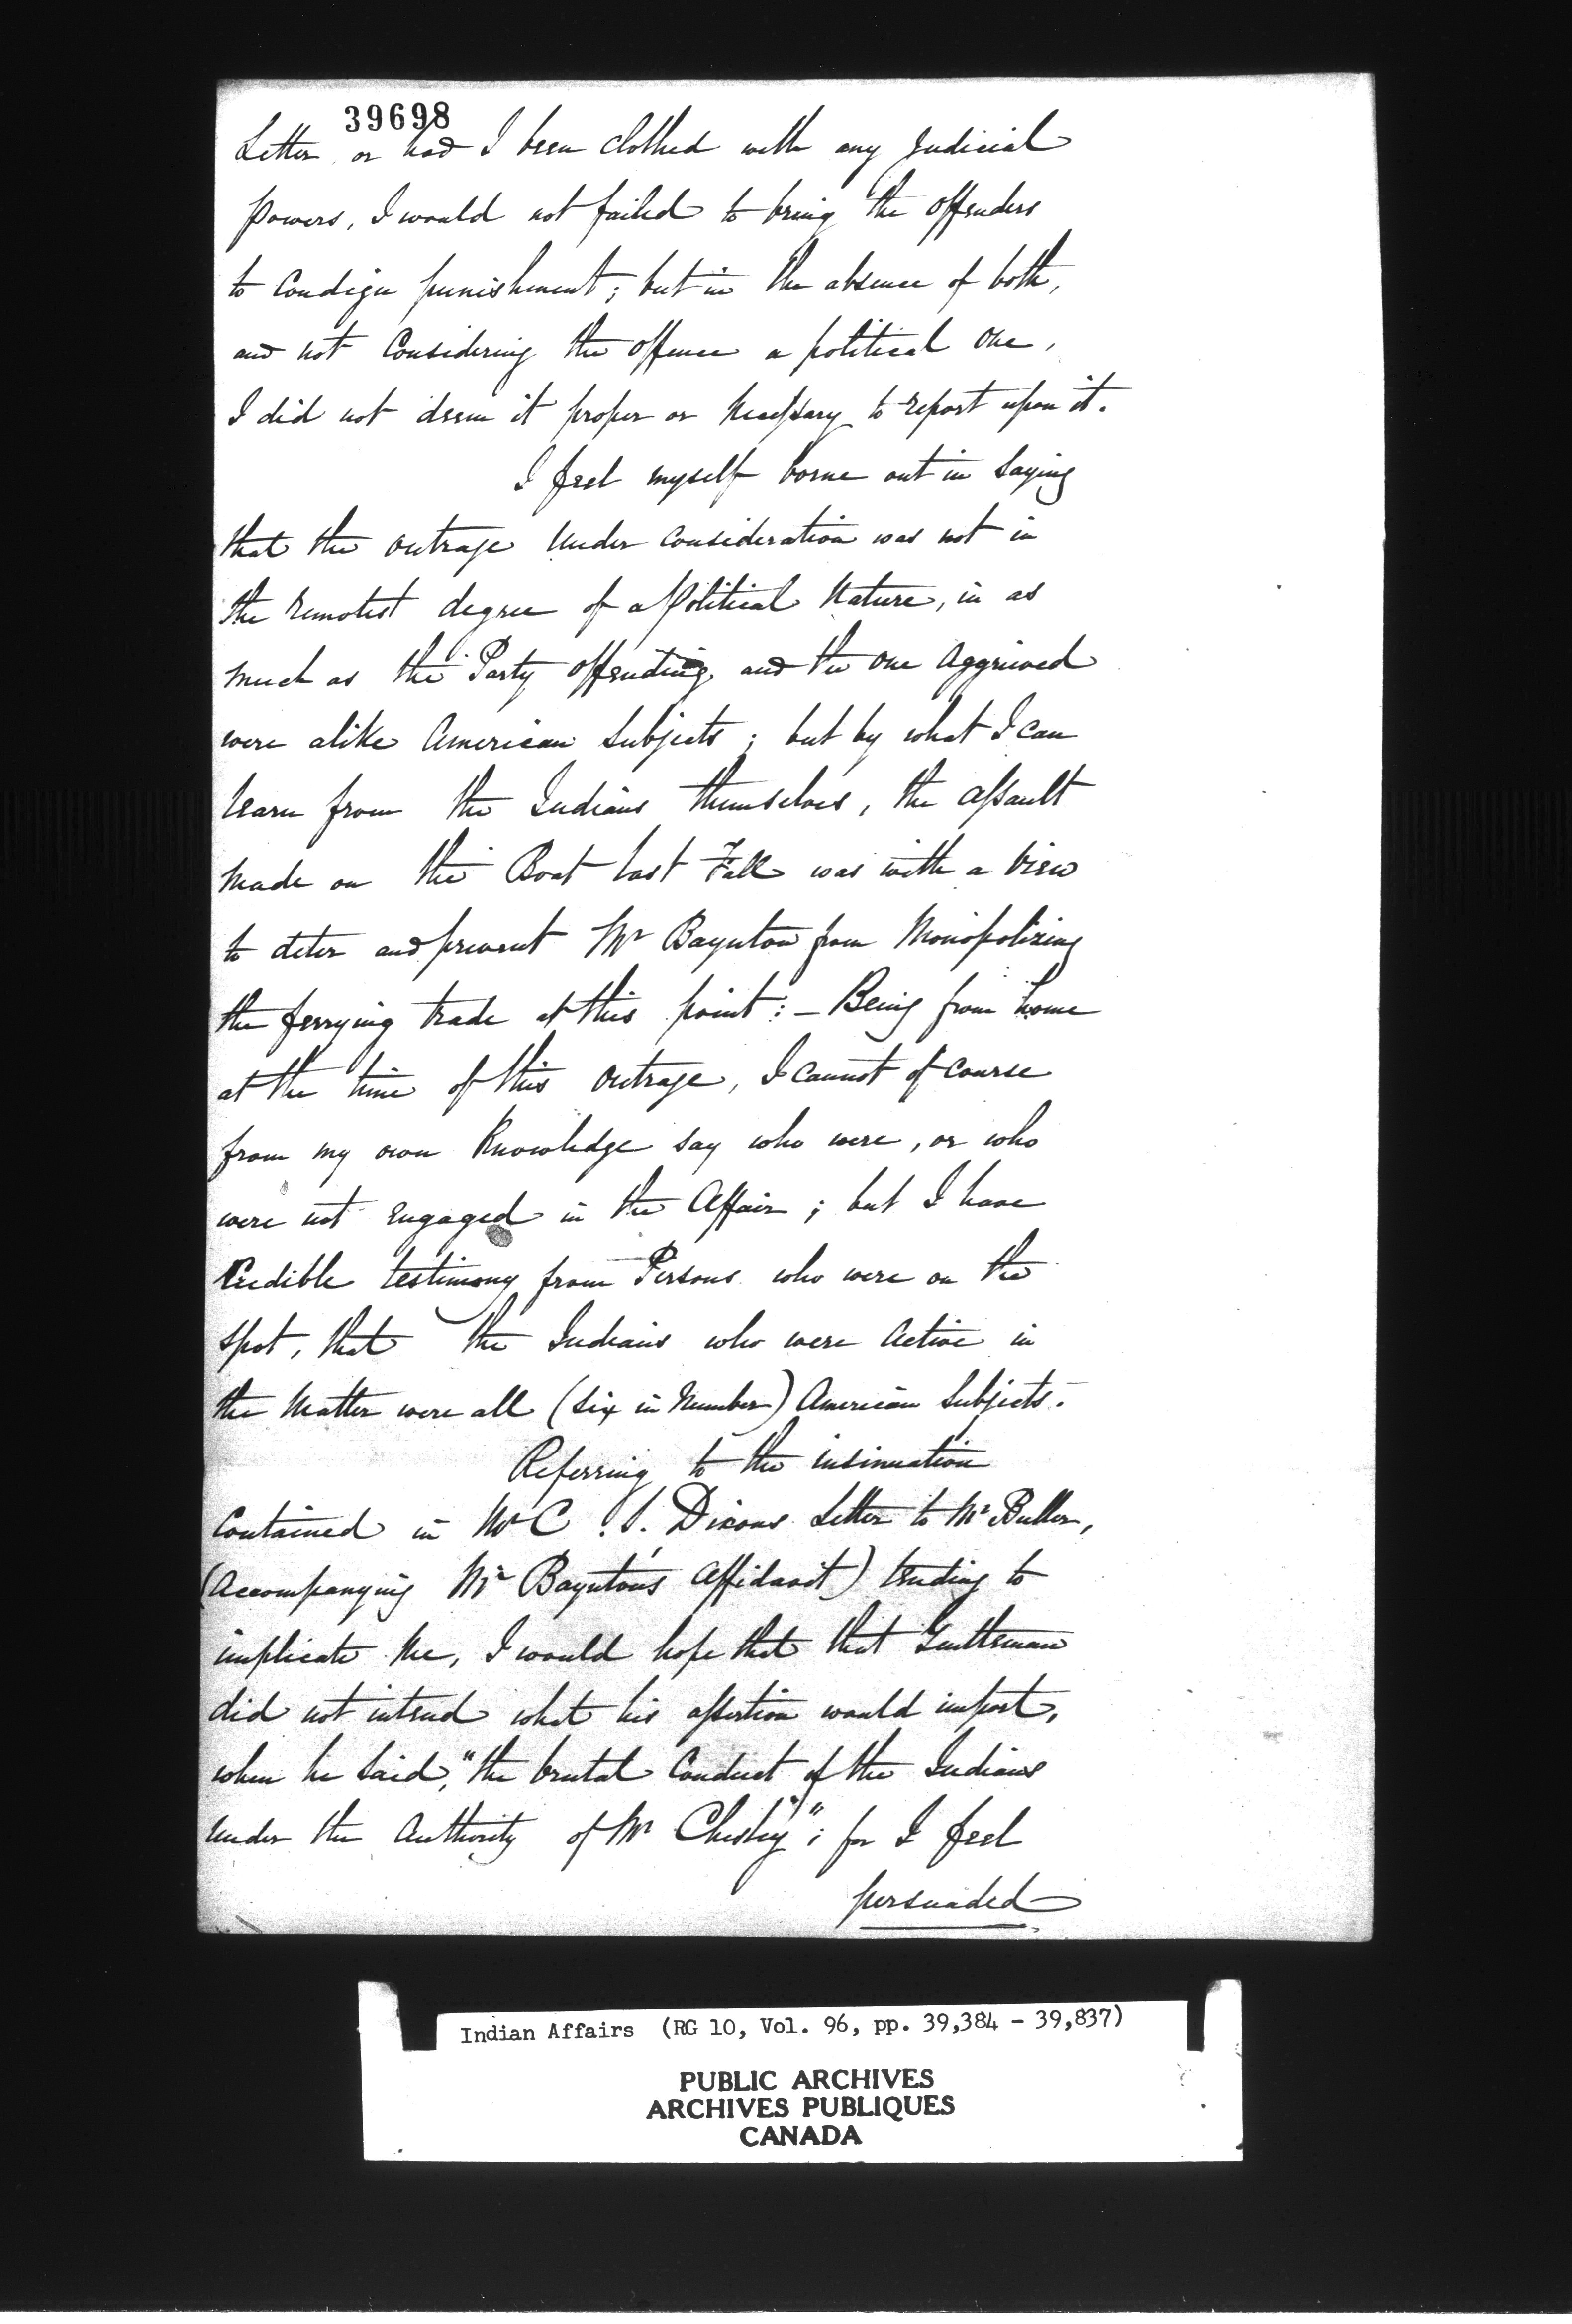 39698
Letter or had I been clothed with any Judicial
powers, I would not failed to bring the offenders
to Condign punishment; but in the absence of both,
and not Considering the offence a political one,
I did not deem it proper or Necessary to report upon it.
I feel myself borne out in Saying
that the outrage Under Consideration was not in
the remotest degree of a political Nature, in as
much as the Party offending and the one Aggrieved
were alike American Subjects; but by what I can
learn from the Indians themselves, the assault
made on the Boat last Fall was with a View
to deter and prevent Mr Baynton from Monopolizing
the ferrying trade at this point:— Being from home
at the time of this outrage, I cannot of Course
from my own Knowledge say who were, or who
were not engaged in the Affair; but I have
Credible testimony from Persons who were on the
spot, that the Indians who were Active in
the Matter were all (Six in Number) American Subjects.
Referring to the insinuation
Contained in Mr C. S. Dixons Letter to Mr Buller,
(Accompanying Mr Baynton's Affidavit) tending to
implicate Me, I would hope that that Gentleman
did not intend what his assertion would import,
when he Said, "the brutal Conduct of the Indians
Under the Authority of Mr Chesley"; for I feel
persuaded
Indian Affairs (RG 10, Vol. 96, pp. 39,384 - 39,837)
PUBLIC ARCHIVES
ARCHIVES PUBLIQUES
CANADA